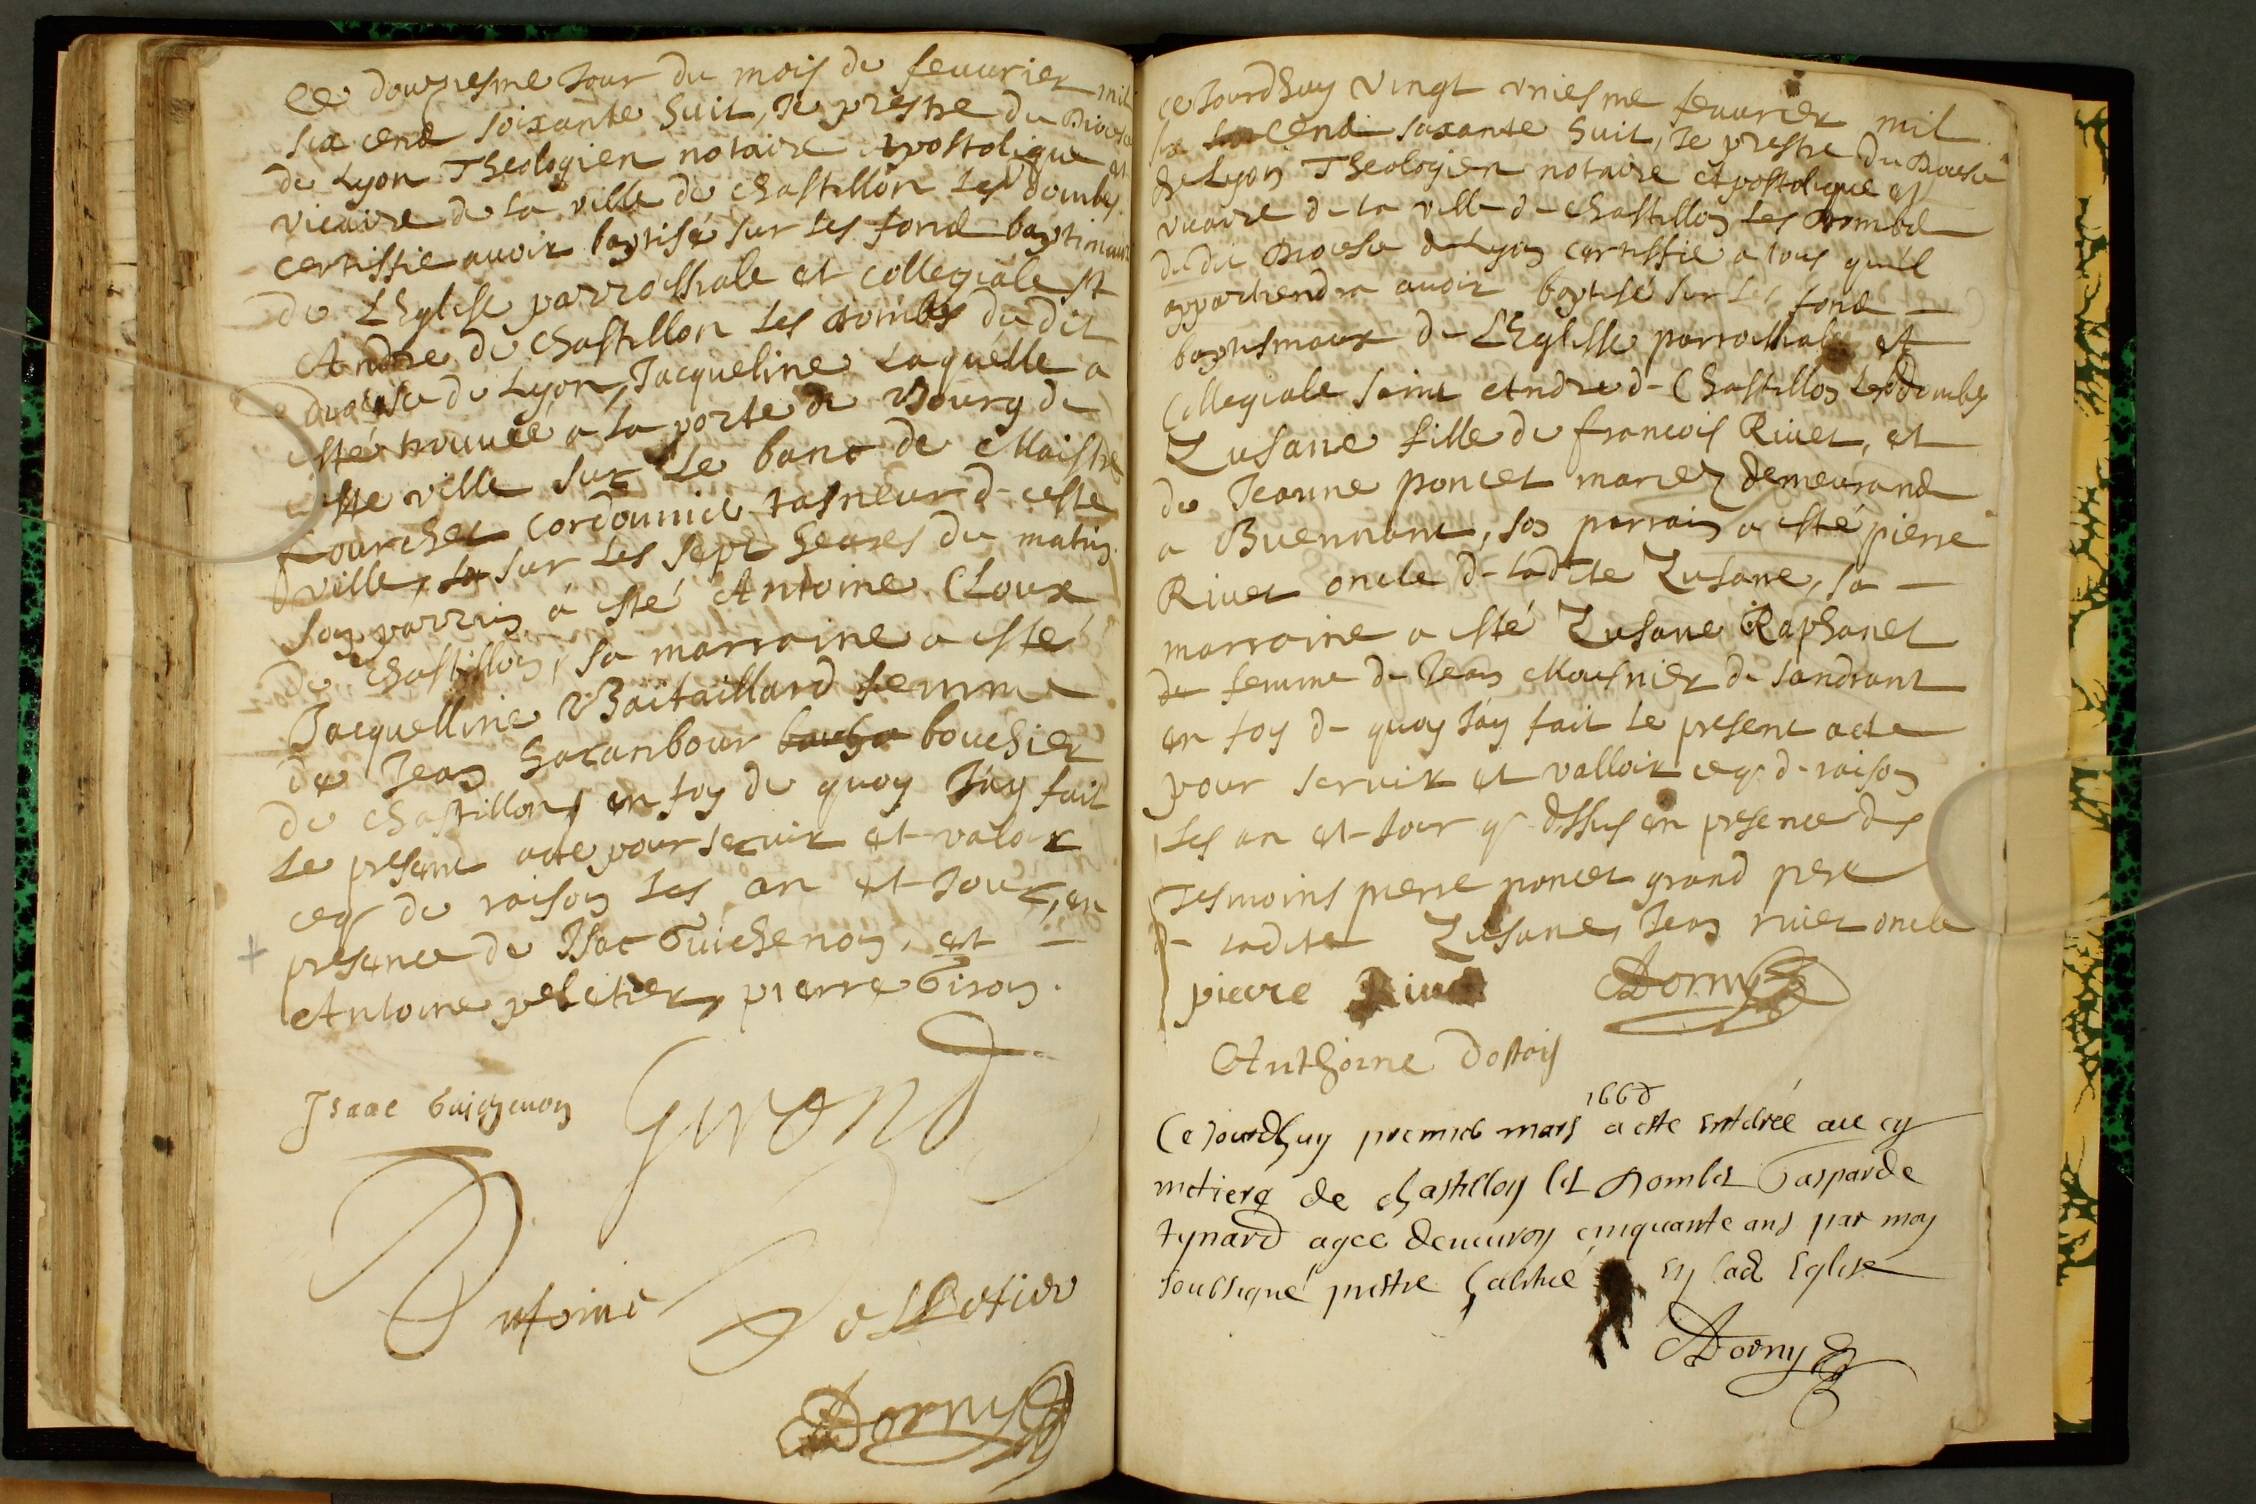 Ce douziesme Jour du mois de feuurier mil
six cend soixante huit, Je prestre du Diocese
de Lyon Theologien notaire Apostolique et
vicaire de la ville de chastillon les dombes
certiffie auoir baptisé sur les fond baptimaux
de L'Eglise parrossiale et collegiale St
Andre de chastillon les dombes du dit
diocese de Lyon, Jacqueline Laquelle a
esté trouuée a la porte de Bourg de
ste ville sur le banc de Maistre
Cordounie tasneur d- ceste
ville, sur les sept heures du matin
son parrin a esté Antoine Cloux
de Chastillon, sa marraine a esté
Jacquelline Bataillard femme
de Jean Haranbour bouchier
de chastillon, en foy de quoy J'ay fait
Le present acte pour seruir et valoir
ceqr de raison les an et Jour, en
presence de Isac Guichenon, et
Antoine peletier, pierre Giron.
Isaac Guichenon Girond
Antoine Pelletier
ADorny
ce Jourd'huy vingt vniesme feuurier mil
six cend soixante huit, Je prestre du Diocese
de Lyon Theologien notaire Apostolique et
vicaire de la ville d- chastillon les dombe
du dit Diocese de Lyon certiffie a tous qu'il
appartiendra auoir baptisé sur les fond
baptismaux de L'Eglisse parrossiale et
Collegiale saint Andre d- Chastillon les dombes
Zusane fille de francois Riuet, et
de Jeanne poncet mariez demeurand
a Buennant, son parrain a esté pierre
Riuet oncle d- ladite Zusane, sa
marraine a esté Zusane Raphanet
de femme de Jean Mousnier de sandrant
en foy d- quoy J'ay fait le present acte
pour seruir et valloir ceqr d- raison
les an et Jour qr dessus en presence des
Tesmoins pierre poncet grand pere
d- ladite Zusane, Jean riuet oncle
pierre Riuet ADorny
Anthoine Dostay
1668
Ce Jourdhuy premier mars a este enterrée au cy
metiere de chastillon les Dombes Gasparde
tynard agee denuiron cinquante ans par moy
soubsigné prestre en lad Eglise
ADorny